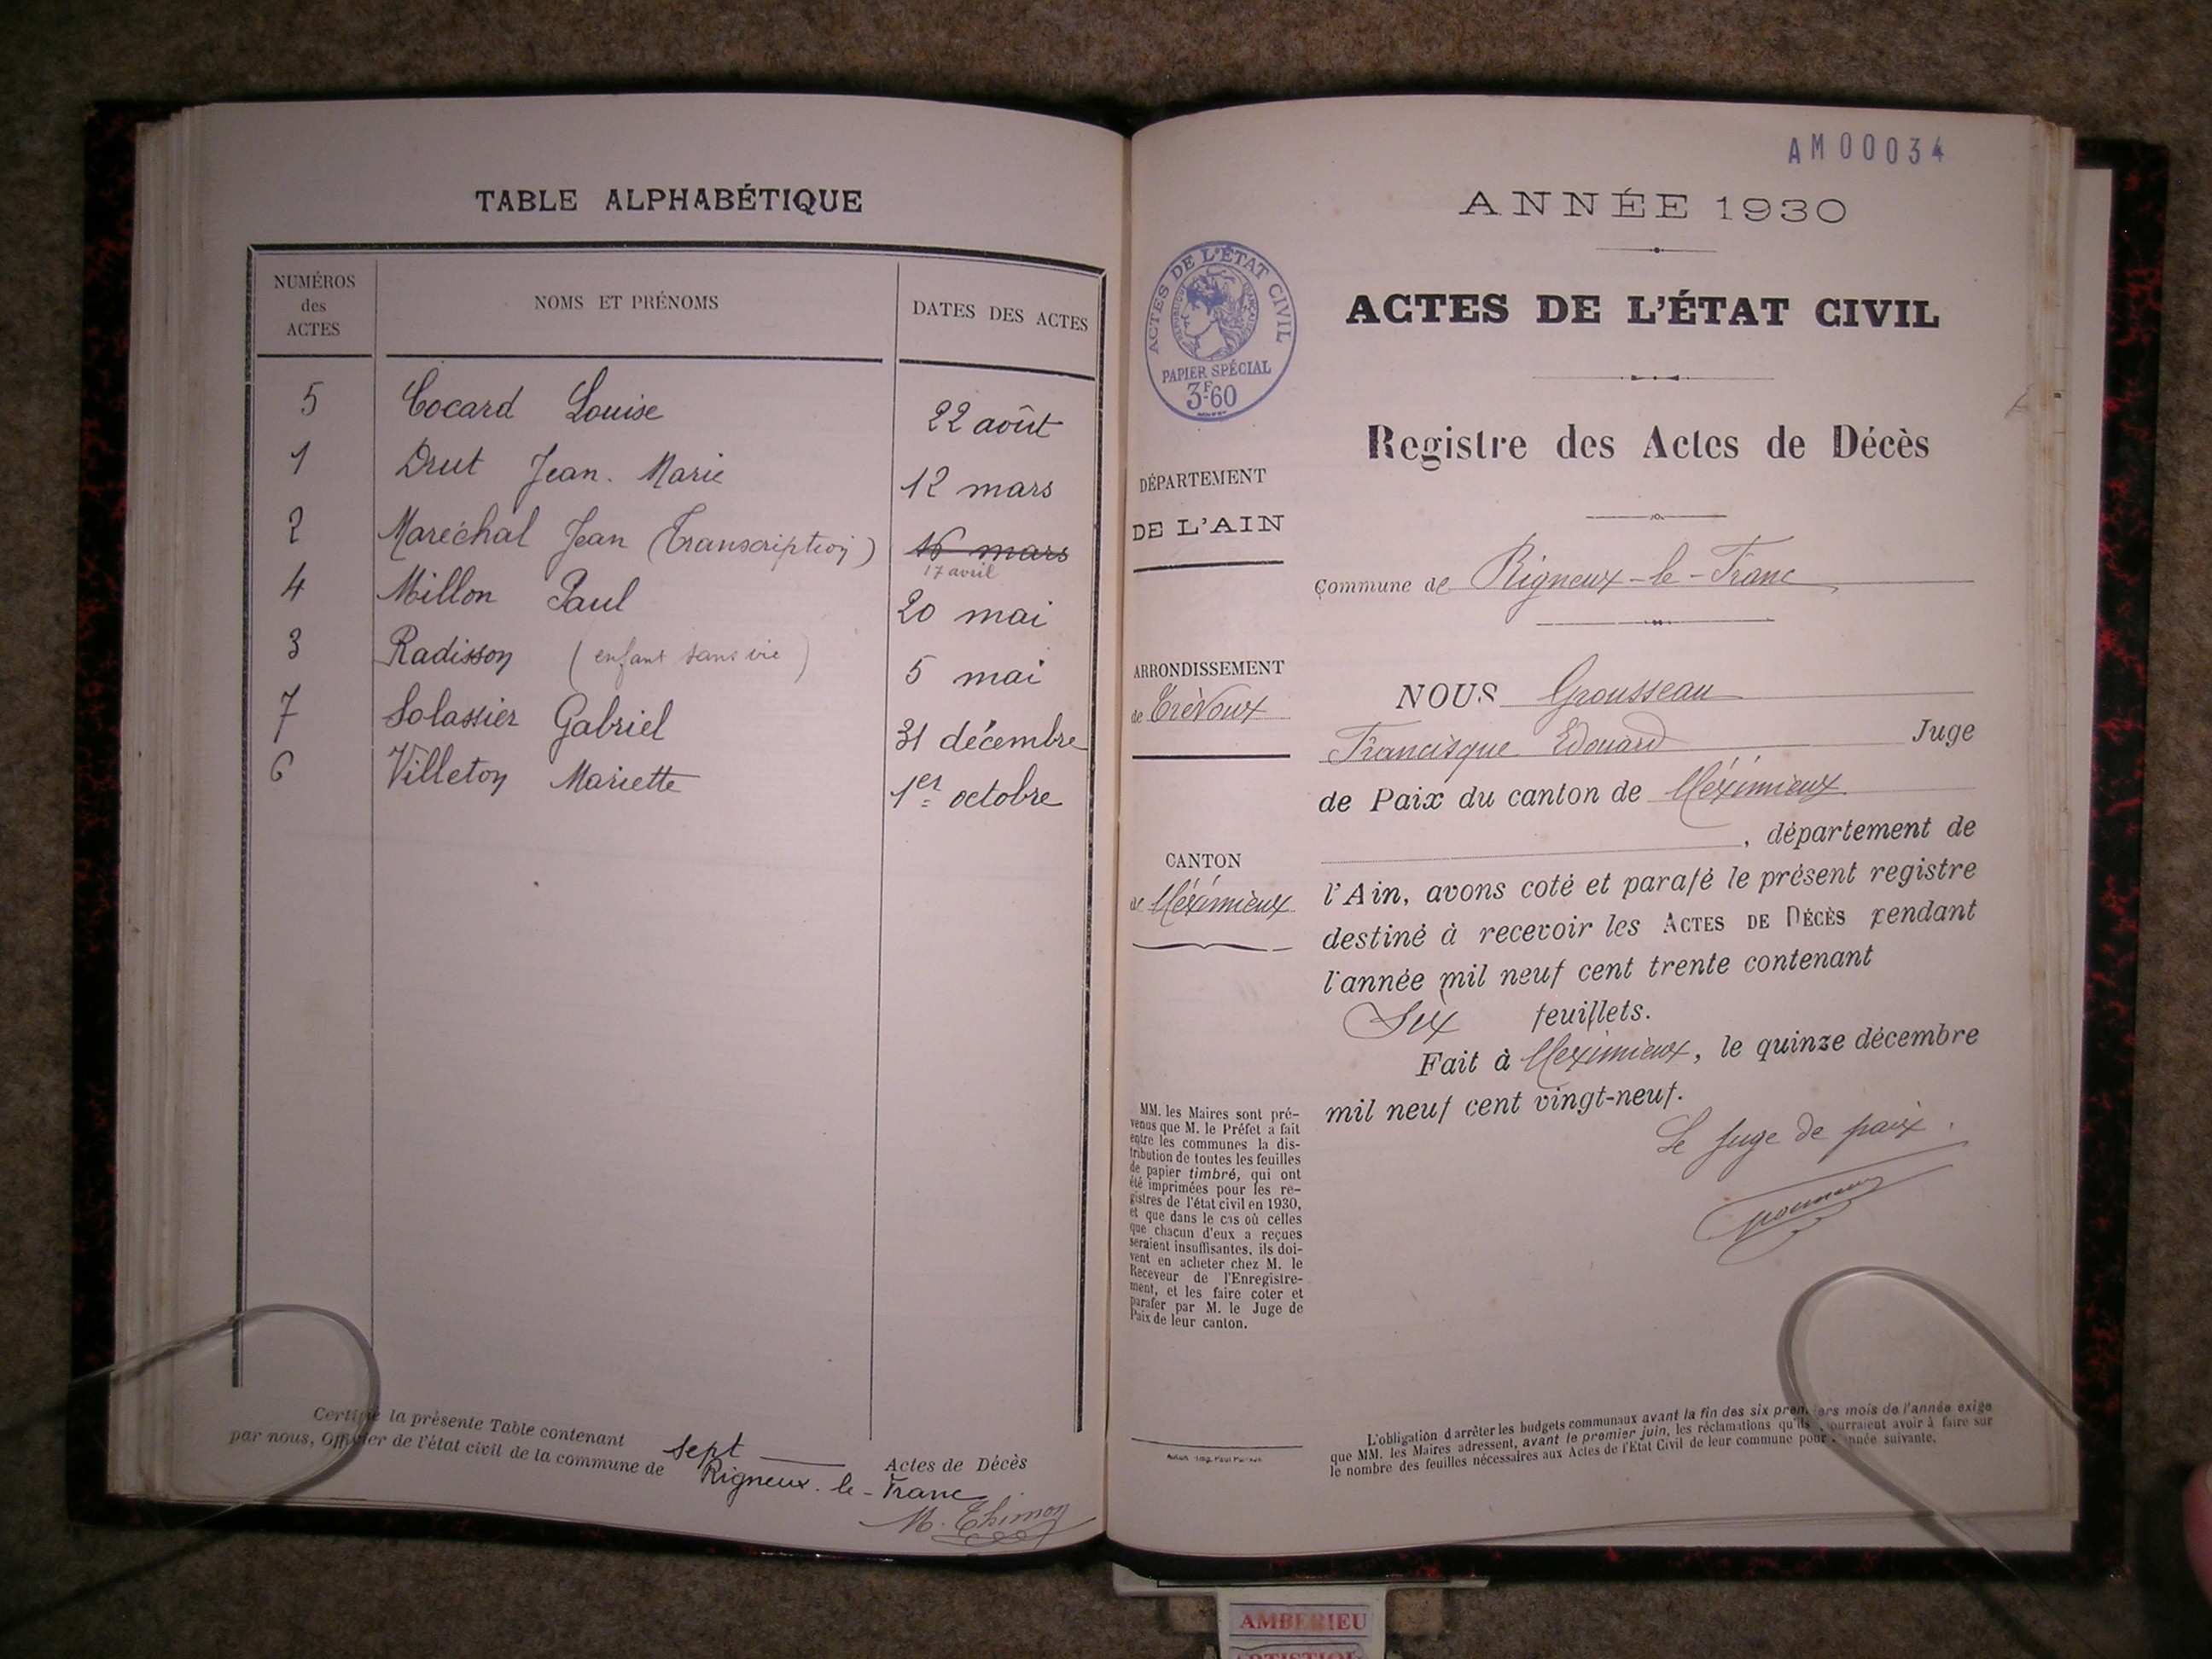 TABLE ALPHABÉTIQUE
NUMÉROS des ACTES NOMS ET PRÉNOMS DATES DES ACTES
5 Cocard Louise 22 août
1 Drut Jean-Marie 12 mars
2 Maréchal Jean (Transcription) 16 mars
17 avril
4 Millon Paul 20 mai
3 Radisson (enfant sans vie) 5 mai
7 Solassier Gabriel 31 décembre
6 Villeton Mariette 1er octobre
Certifié la présente Table contenant sept Actes de Décès
par nous, Officier de l'état civil de la commune de Rigneux-le-Franc
M. Thimon
AM00034
ANNÉE 1930
ACTES DE L'ÉTAT CIVIL
RÉPUBLIQUE FRANÇAISE
PAPIER SPÉCIAL
3F60
ACTES DE L'ÉTAT CIVIL
Registre des Actes de Décès
DÉPARTEMENT
DE L'AIN
Commune de Rigneux-le-Franc
ARRONDISSEMENT
de Trévoux
NOUS Grousseau
Francisque Edouard Juge
de Paix du canton de Méximieux
, département de
CANTON
de Méximieux
l'Ain, avons coté et parafé le présent registre
destiné à recevoir les ACTES DE DÉCÈS pendant
l'année mil neuf cent trente contenant
Six feuillets.
Fait à Meximieux, le quinze décembre
mil neuf cent vingt-neuf.
Le Juge de paix.
MM. les Maires sont pré-
venus que M. le Préfet a fait
entre les communes la dis-
tribution de toutes les feuilles
de papier timbré, qui ont
été imprimées pour les re-
gistres de l'état civil en 1930,
et que dans le cas où celles
que chacun d'eux a reçues
seraient insuffisantes, ils doi-
vent en acheter chez M. le
Receveur de l'Enregistre-
ment, et les faire coter et
parafer par M. le Juge de
Paix de leur canton.
L'obligation d'arrêter les budgets communaux avant la fin des six premiers mois de l'année exige
que MM. les Maires adressent, avant le premier juin, les réclamations qu'ils pourraient avoir à faire sur
le nombre des feuilles nécessaires aux Actes de l'Etat Civil de leur commune pour l'année suivante.
AMBERIEU